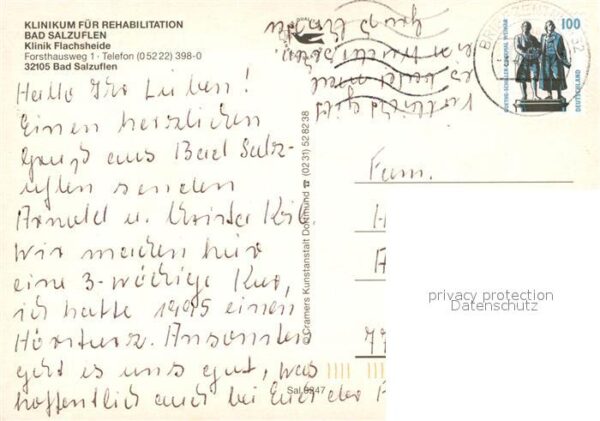 KLINIKUM FÜR REHABILITATION
BAD SALZUFLEN
Klinik Flachsheide
Forsthausweg 1 · Telefon (0 52 22) 398-0
32105 Bad Salzuflen
Hallo Ihr Lieben!
Einen herzlichen
Gruß aus Bad Salz-
uflen senden
Arnold u. Christa
Wir machen hier
eine 3-wöchige Kur,
ich hatte 1995 einen
Hörsturz. Ansonsten
geht es uns gut, was
hoffentlich auch bei Euch der F
Vielleicht gibt
es bald mal
ein
Cramers Kunstanstalt Dortmund ☎ (02 31) 52 82 38
Sal 9247
100
DEUTSCHLAND
GOETHE-SCHILLER-DENKMAL WEIMAR
BRIEFZENTRUM 32
Fam.
H
A
privacy protection
Datenschutz